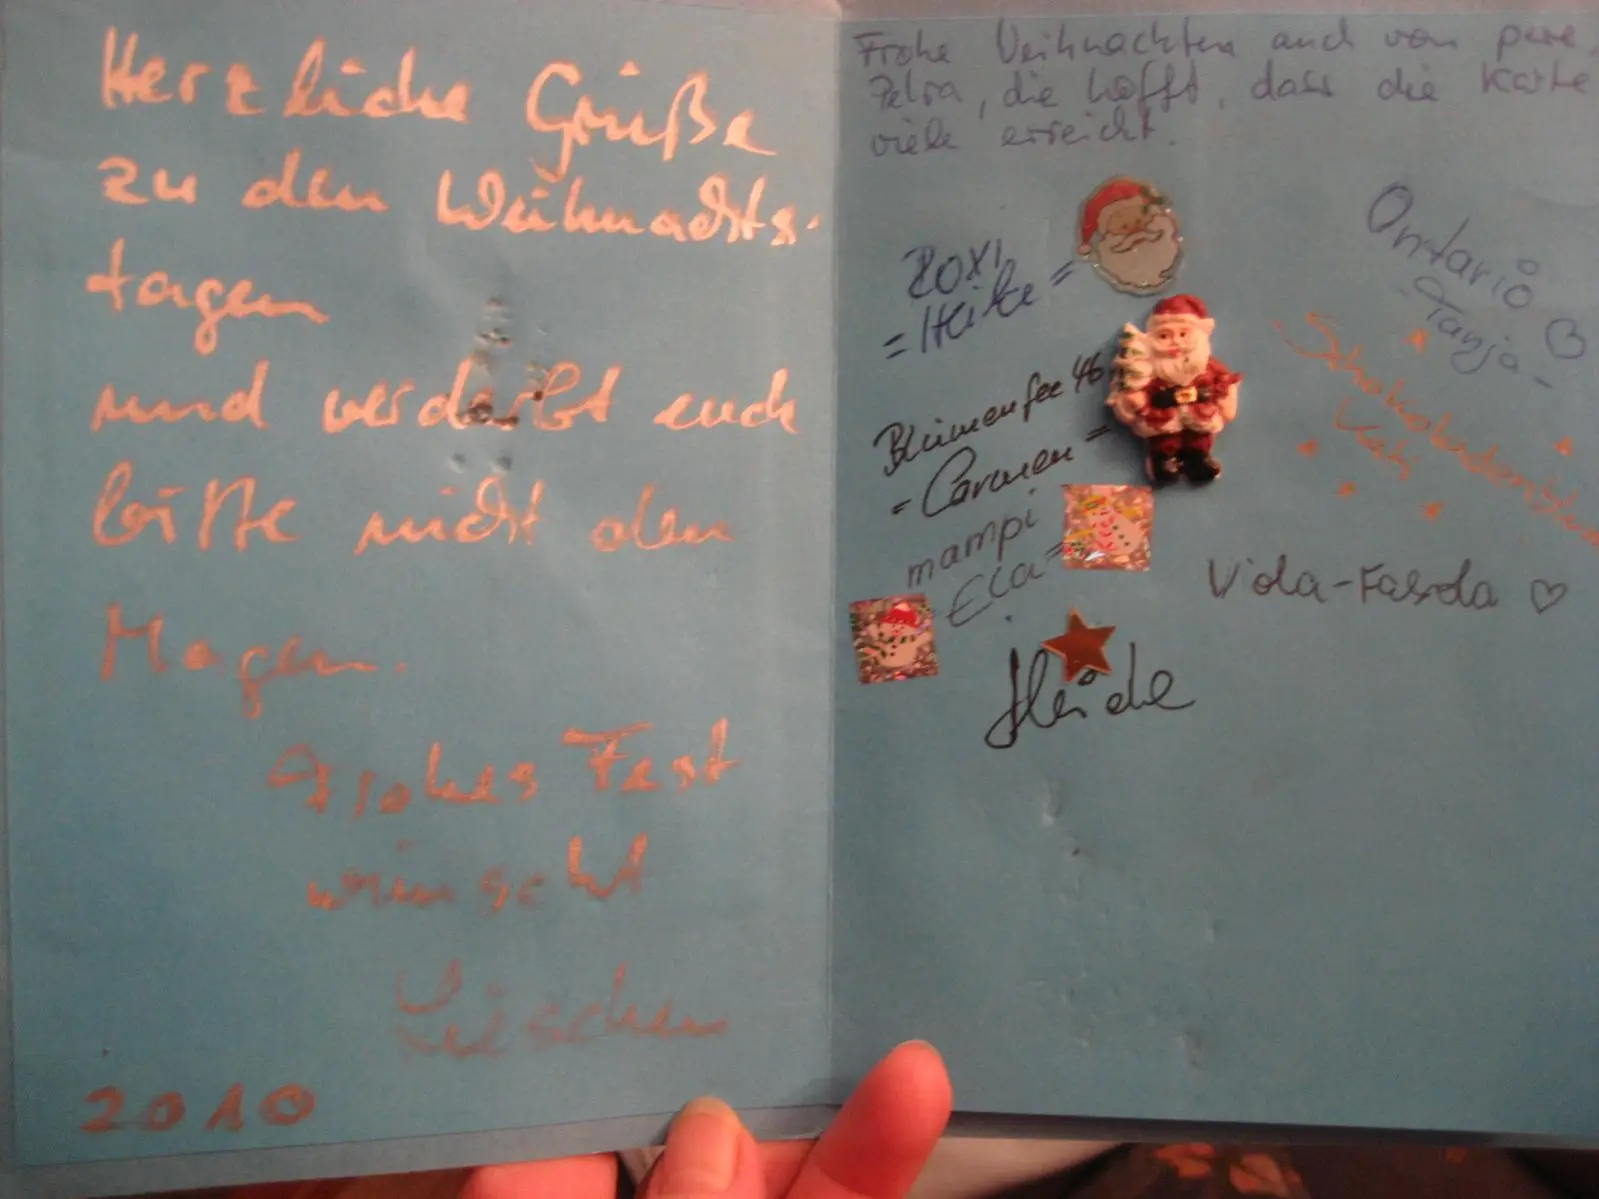 Herzliche Grüße
zu den Weihnachts-
tagen
und verderbt euch
bitte nicht den
Magen.
Frohes Fest
wünscht
Lieschen
2010
Frohe Weihnachten auch von
Petra, die hofft, dass die Karte
viele erreicht.
ROXI
=Heike=
Blumenfee 46
=Carmen=
mampi
Ela=
Heide
Ontario
-Tanja-
Kati
Viola-Fasola ♡